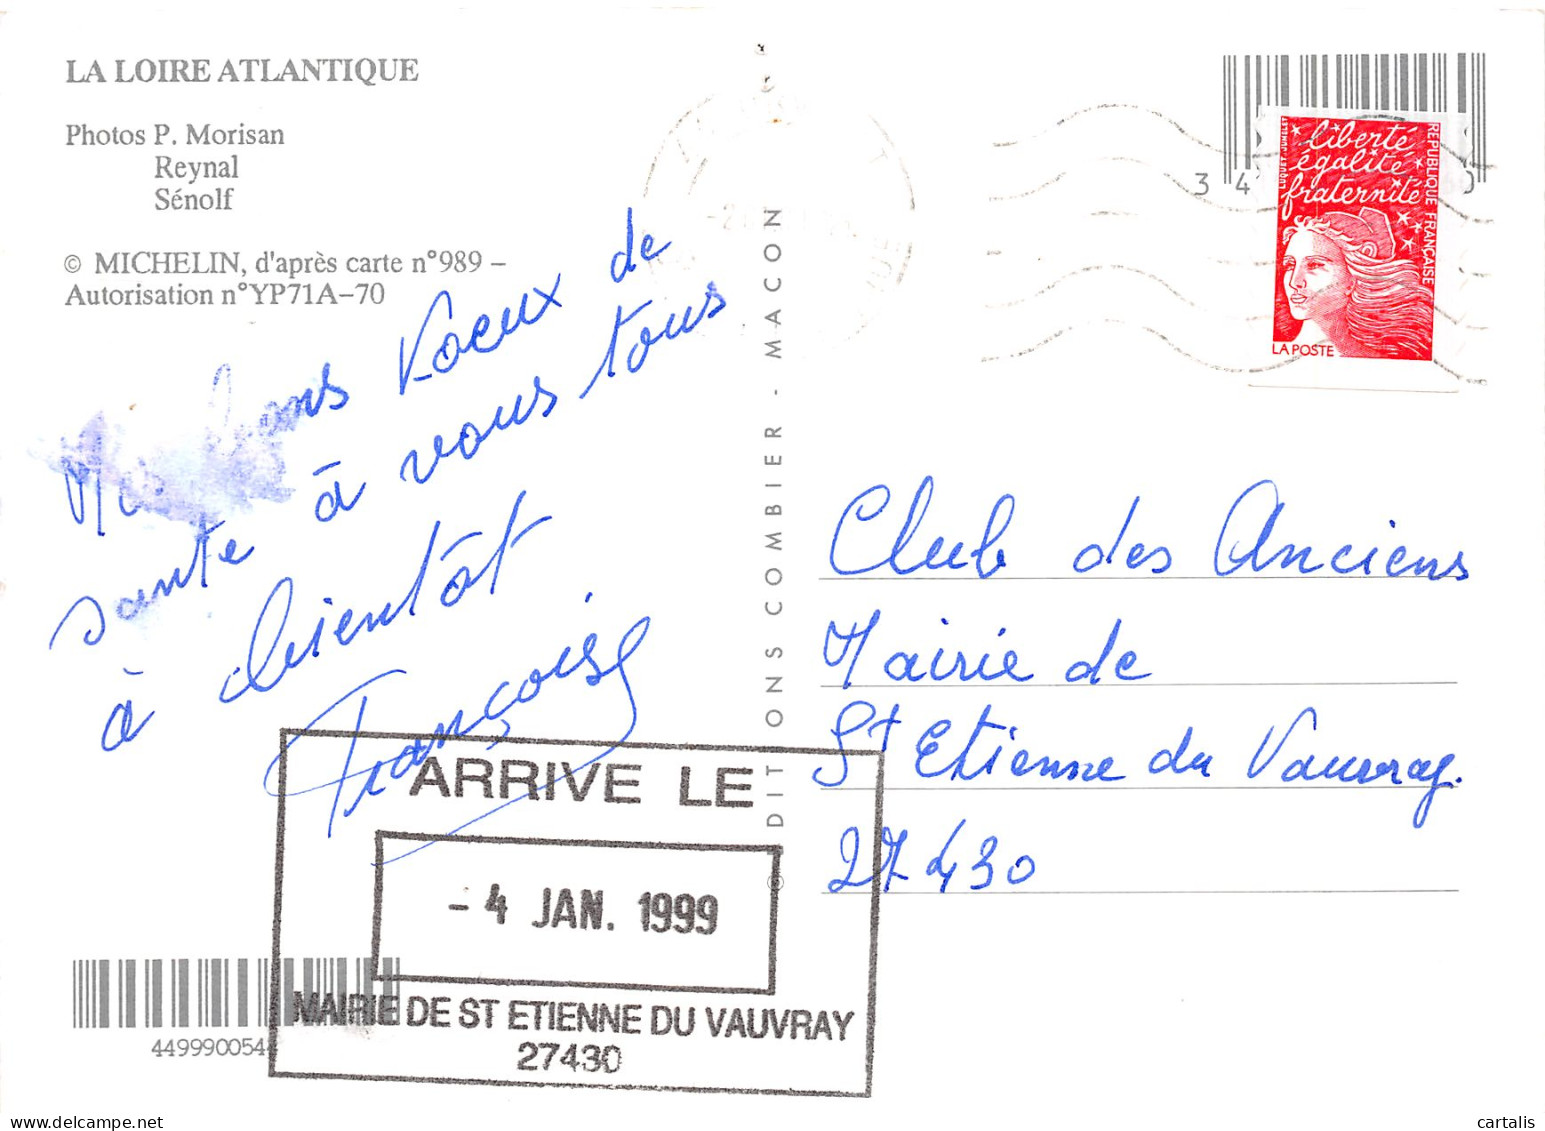 LA LOIRE ATLANTIQUE
Photos P. Morisan
Reynal
Sénolf
© MICHELIN, d'après carte n°989 –
Autorisation n°YP71A–70
bons Voeux de
sante à vous tous
à bientôt
Françoise
DIT ONS COMBIER - MACON
3 4
0
liberté
égalité
fraternité
REPUBLIQUE FRANÇAISE
LUQUET JUMELET
LA POSTE
Club des Anciens
Mairie de
St Etienne du Vauvray.
27430
ARRIVE LE
- 4 JAN. 1999
MAIRIE DE ST ETIENNE DU VAUVRAY
27430
449990054
cartalis